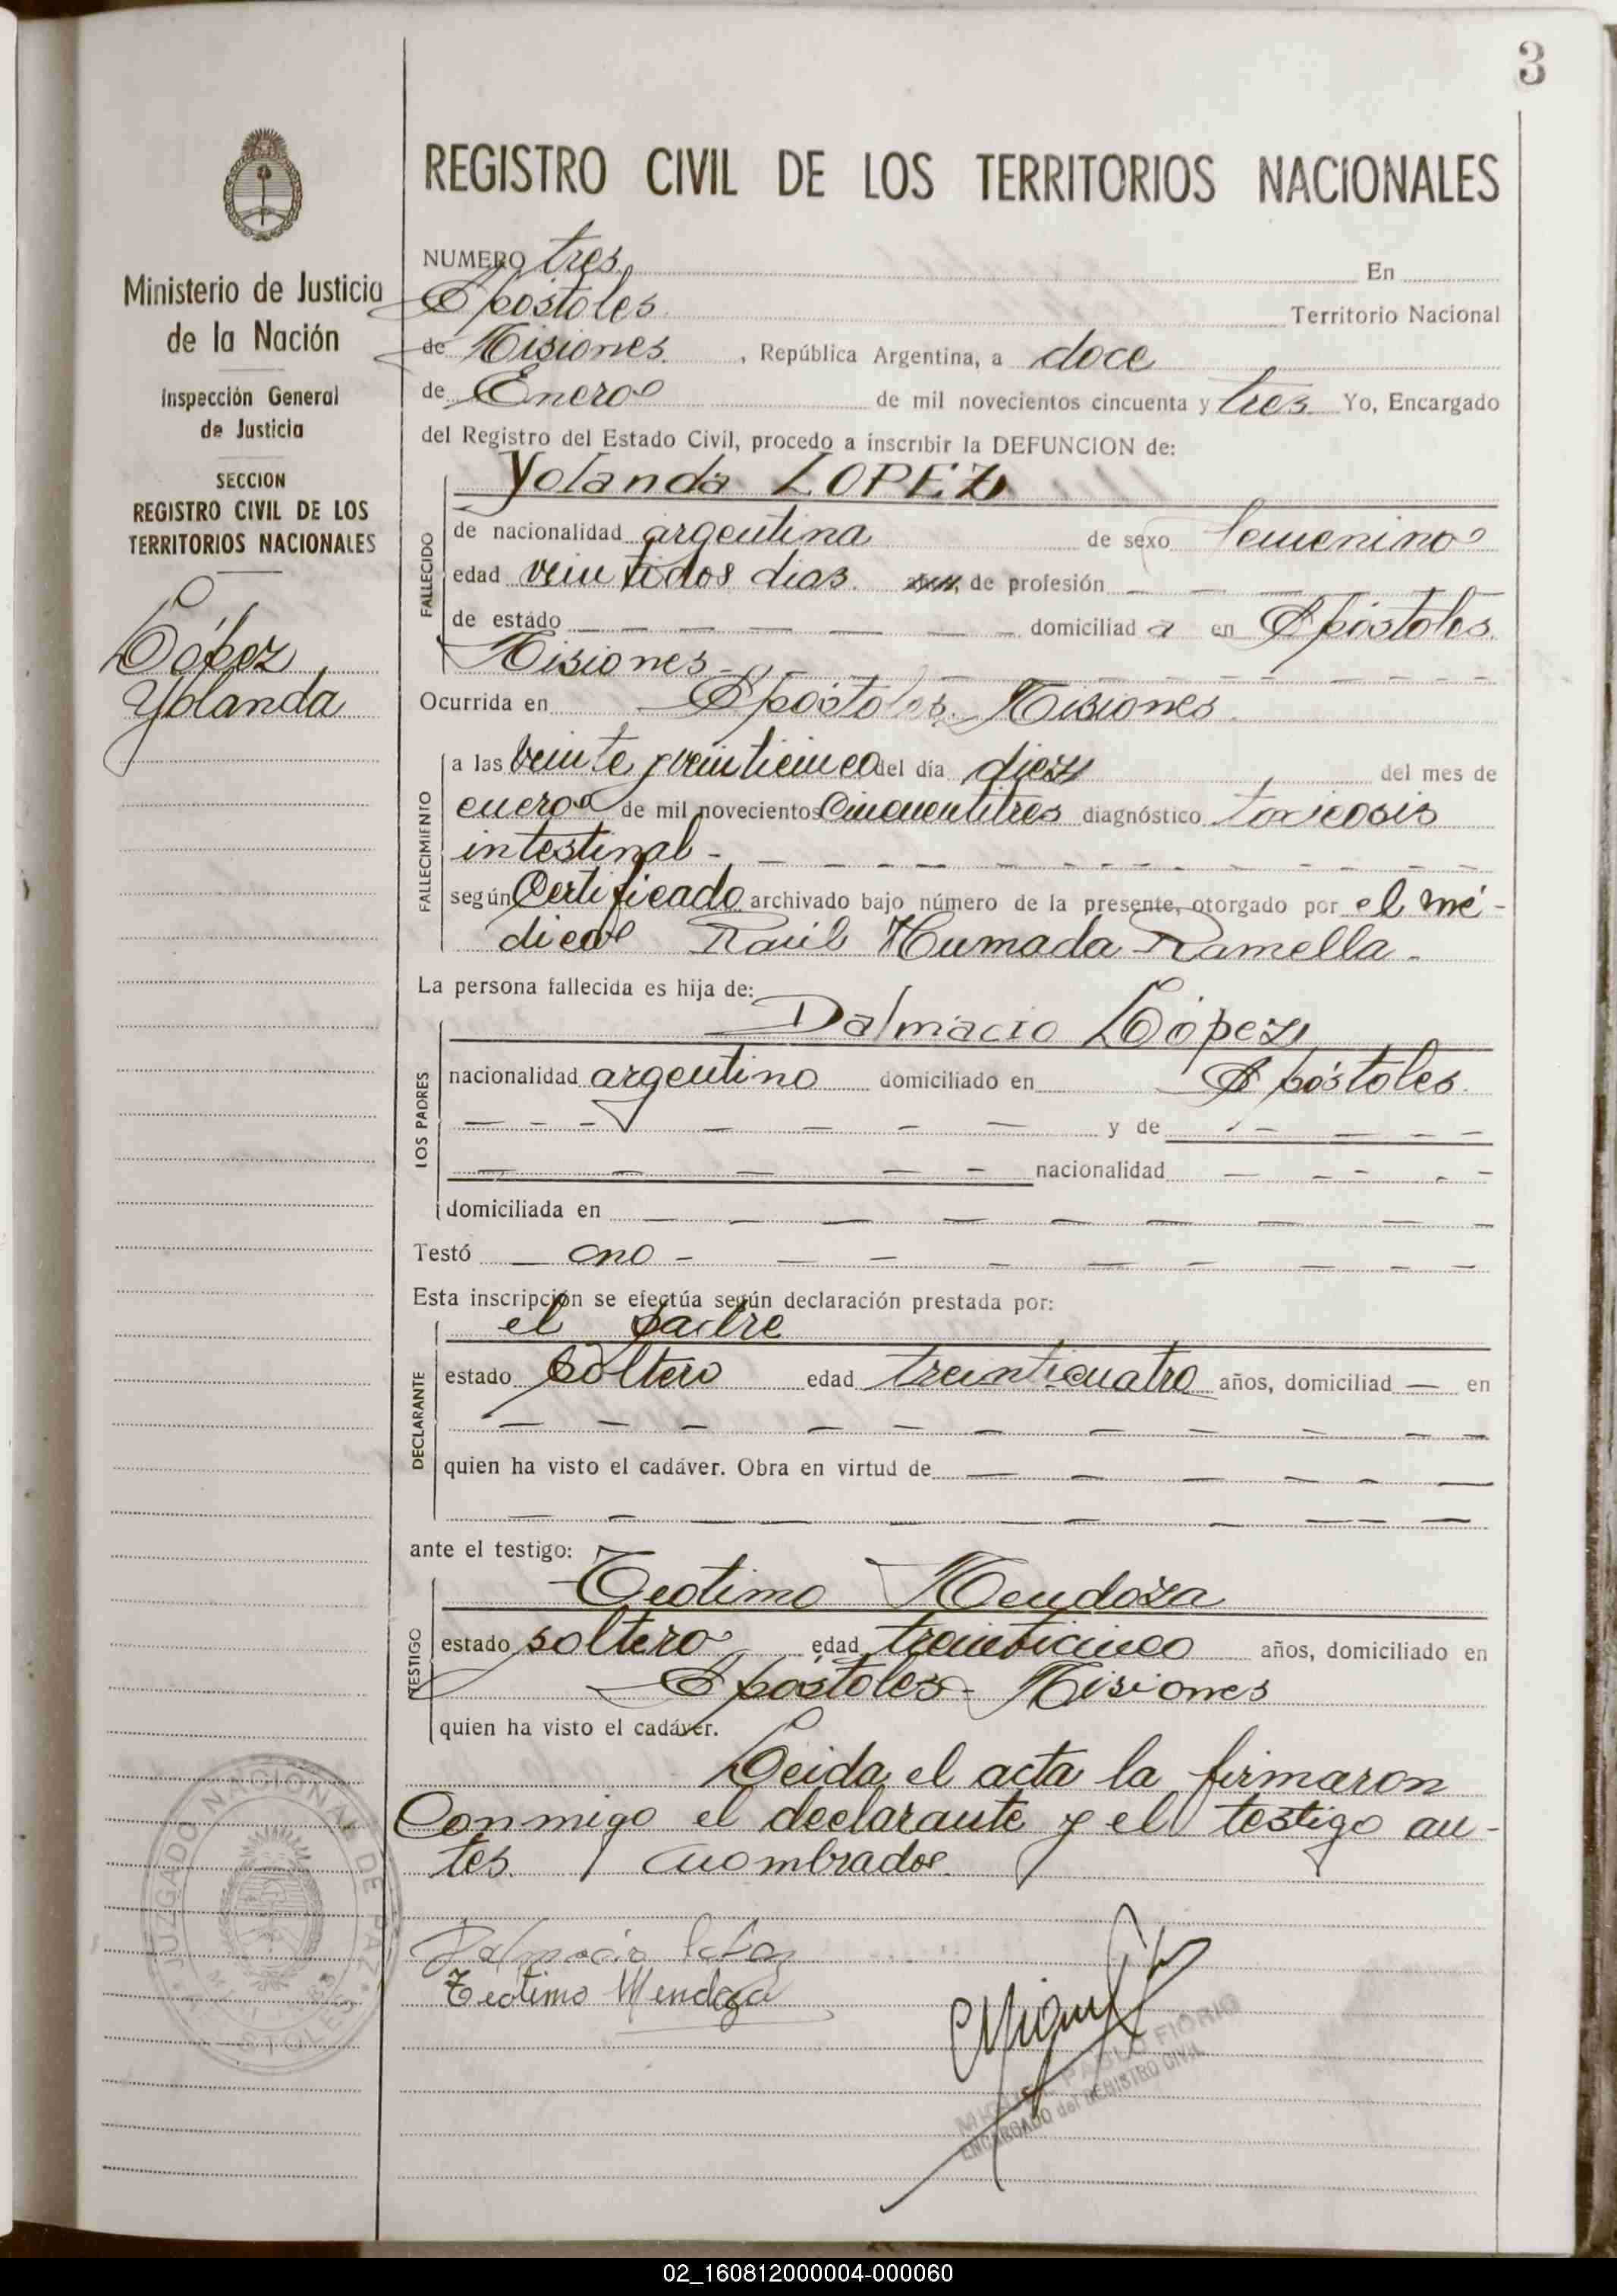 3
REGISTRO CIVIL DE LOS TERRITORIOS NACIONALES
Ministerio de Justicia
de la Nación
Inspección General
de Justicia
SECCION
REGISTRO CIVIL DE LOS
TERRITORIOS NACIONALES
López
Yolanda
NUMERO tres En
Apóstoles Territorio Nacional
de Misiones , República Argentina, a doce
de Enero de mil novecientos cincuenta y tres Yo, Encargado
del Registro del Estado Civil, procedo a inscribir la DEFUNCION de:
Yolanda LOPEZ
FALLECIDO
de nacionalidad argentina de sexo femenino
edad veintidos dias años, de profesión — — —
de estado — — — — — — domiciliad a en Apóstoles
Misiones - - - - -
Ocurrida en Apóstoles. Misiones
FALLECIMIENTO
a las veinte y veinticinco del día diez del mes de
enero de mil novecientos cincuentitres diagnóstico toxicosis
intestinal - - - - - -
según Certificado archivado bajo número de la presente, otorgado por el mé-
dico Raúl Humada Ramella -
La persona fallecida es hija de:
Dalmacio López
LOS PADRES
nacionalidad argentino domiciliado en Apóstoles
— - - — — — — y de - — — -
— — — — - nacionalidad — - - -
domiciliada en — — — — — — — — —
Testó — no - — — — — — — — —
Esta inscripción se efectúa según declaración prestada por:
el padre
DECLARANTE
estado soltero edad treinticuatro años, domiciliad — en
— — — — — — — — — — —
quien ha visto el cadáver. Obra en virtud de — — — — - —
— — — — — — — — — —
ante el testigo:
Teotimo Mendoza
TESTIGO
estado soltero edad treinticinco años, domiciliado en
Apóstoles - Misiones
quien ha visto el cadáver.
Leida el acta la firmaron
conmigo el declarante y el testigo an-
tes nombrado.
Dalmacio López
Teotimo Mendoza
Miguel
MIGUEL PABLO FIORIO
ENCARGADO del REGISTRO CIVIL
JUZGADO NACIONAL DE PAZ
02_160812000004-000060